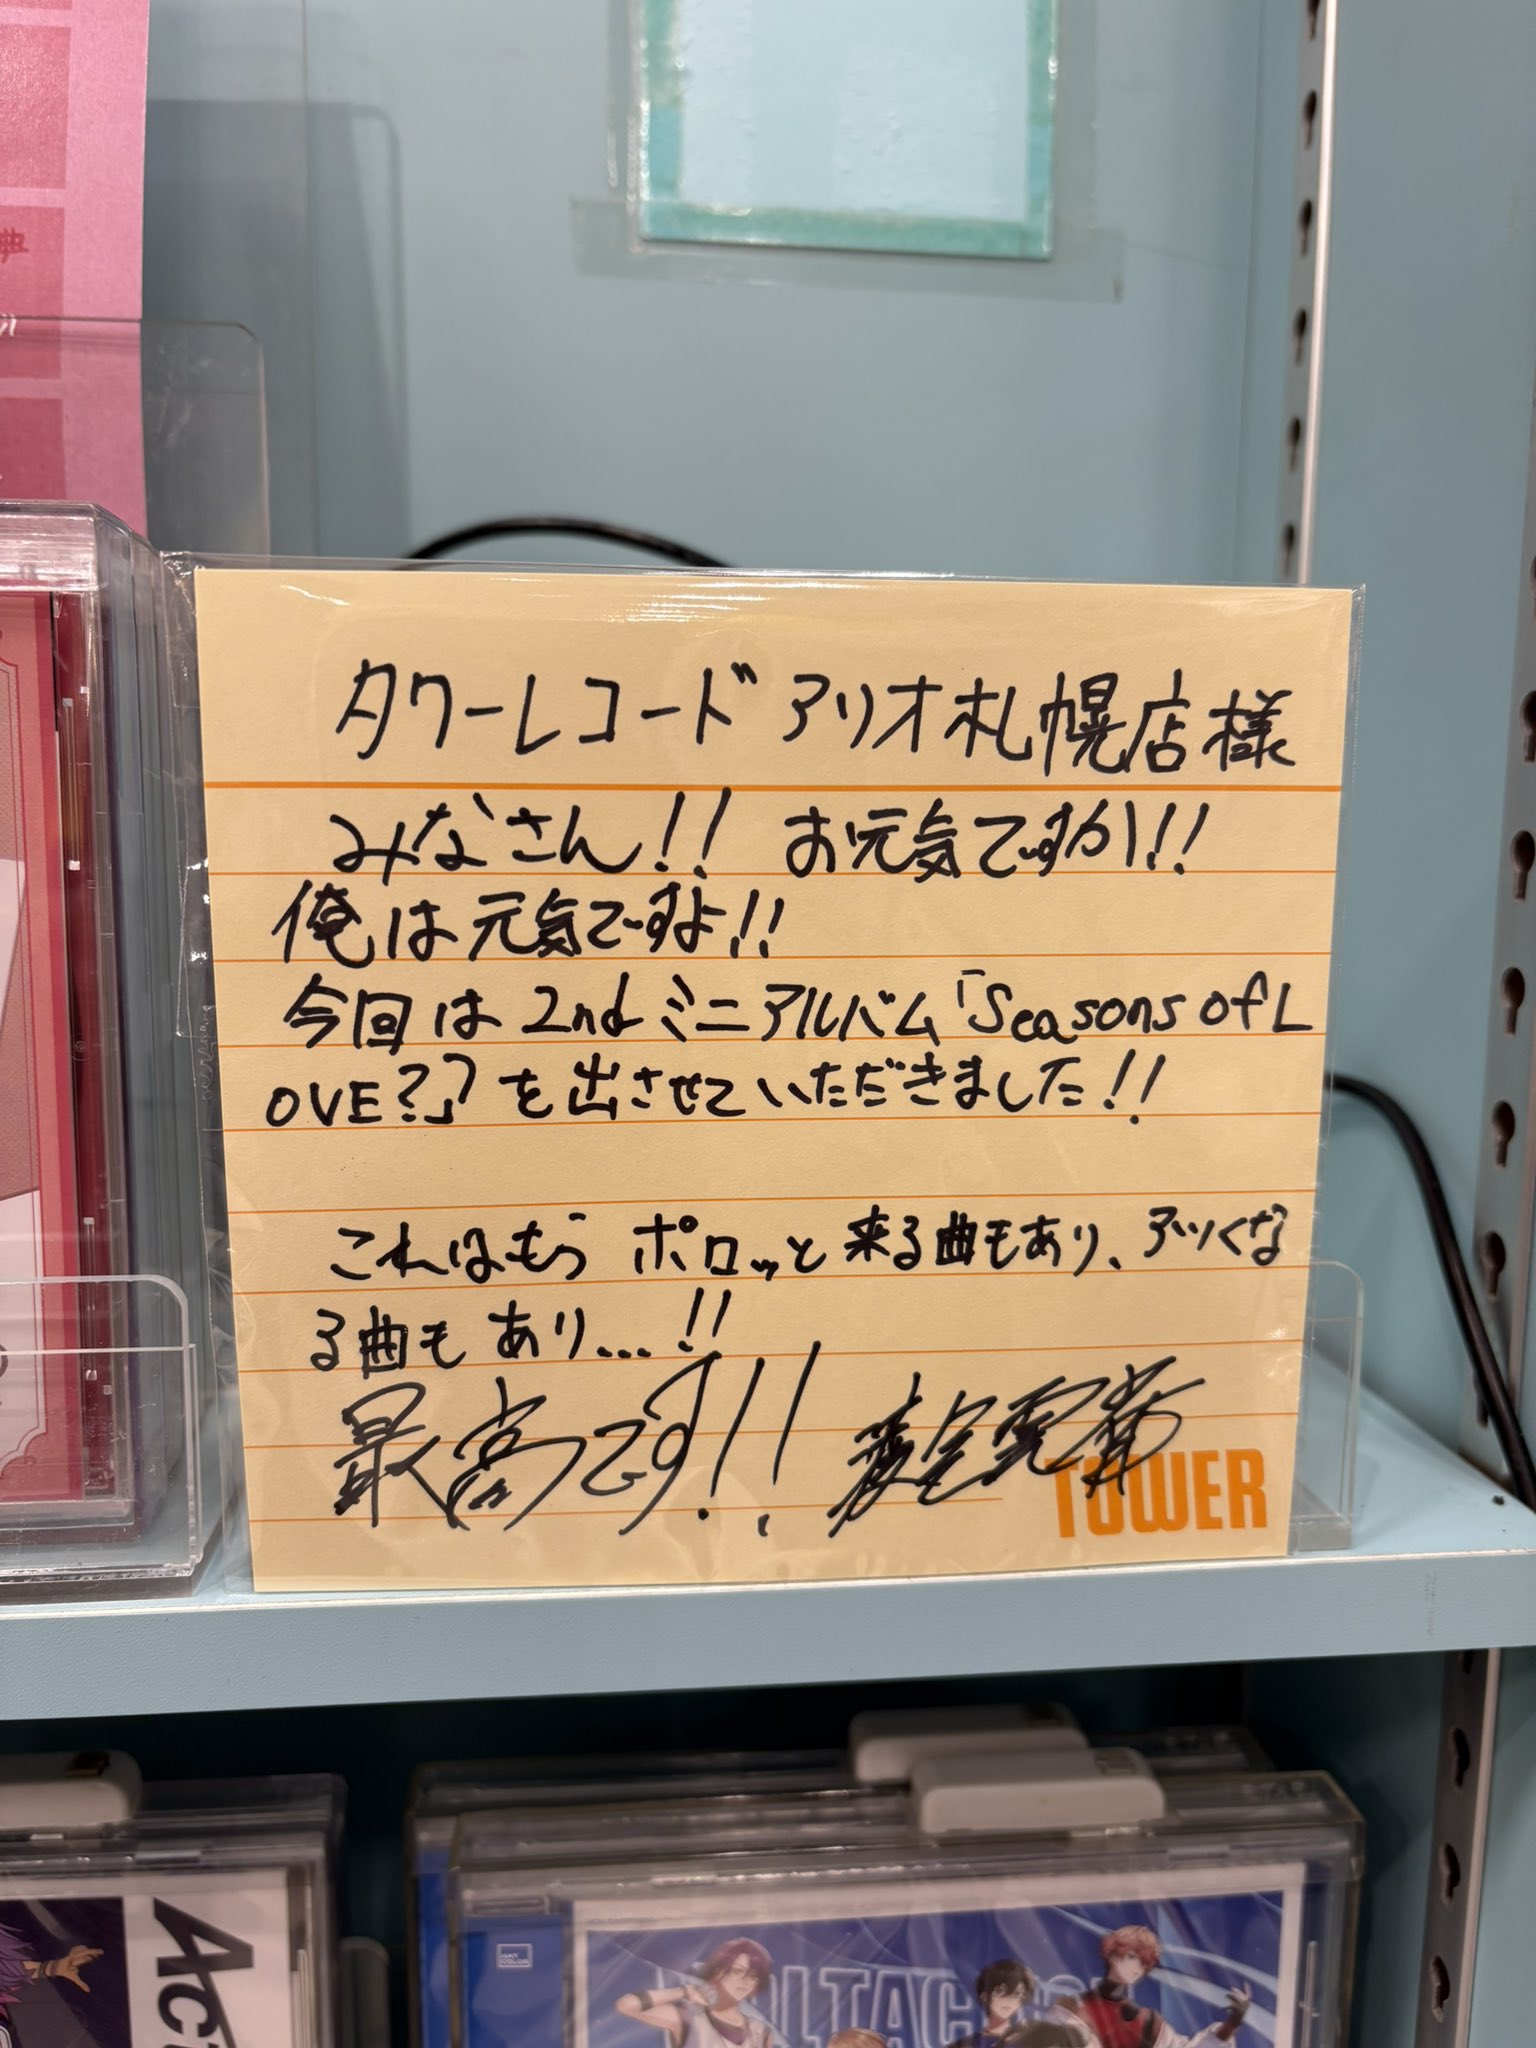 タワーレコード アリオ札幌店様
みなさん!! お元気ですか!!
俺は元気ですよ!!
今回は2ndミニアルバム「Seasons of L
OVE?」を出させていただきました!!
これはもう ポロッと来る曲もあり、アツくな
る曲もあり...!!
最高です!!
TOWER
ACT
VOLTACTION